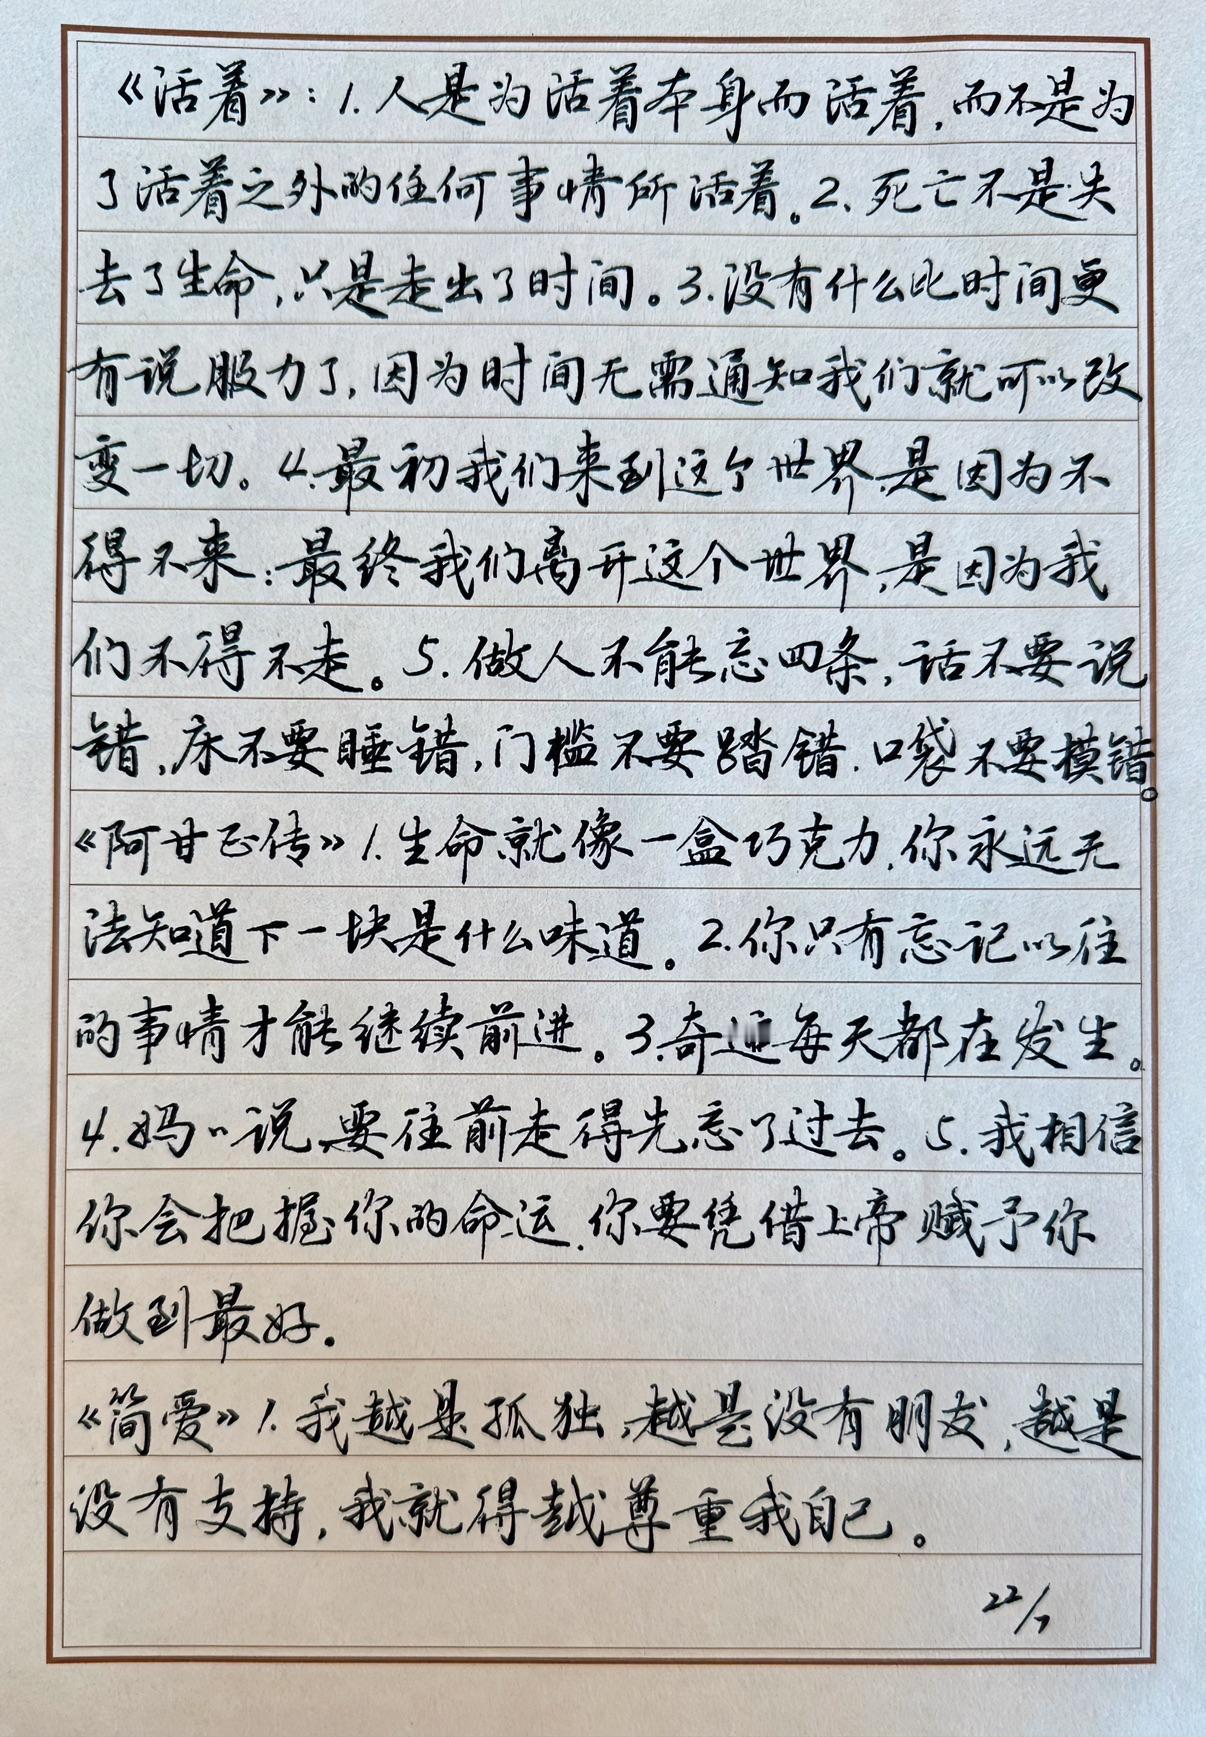 《活着》:1.人是为活着本身而活着,而不是为
了活着之外的任何事情所活着。2.死亡不是失
去了生命,只是走出了时间。3.没有什么比时间更
有说服力了,因为时间无需通知我们就可以改
变一切。4.最初我们来到这个世界,是因为不
得不来;最终我们离开这个世界,是因为我
们不得不走。5.做人不能忘四条,话不要说
错,床不要睡错,门槛不要踏错.口袋不要模错。
《阿甘正传》1.生命就像一盒巧克力,你永远无
法知道下一块是什么味道。2.你只有忘记以往
的事情才能继续前进。3.奇迹每天都在发生。
4.妈〃说,要往前走得先忘了过去。5.我相信
你会把握你的命运.你要凭借上帝赋予你
做到最好.
《简爱》1.我越是孤独,越是没有朋友,越是
没有支持,我就得越尊重我自己。
22/7